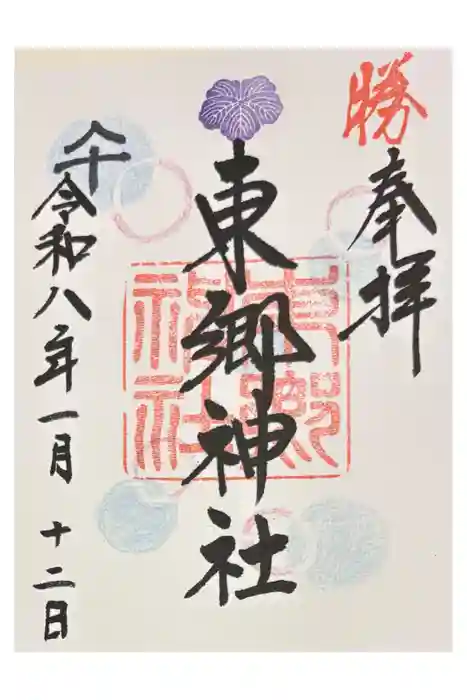 勝
奉拝
東郷神社
東郷神社
午
令和八年一月十二日